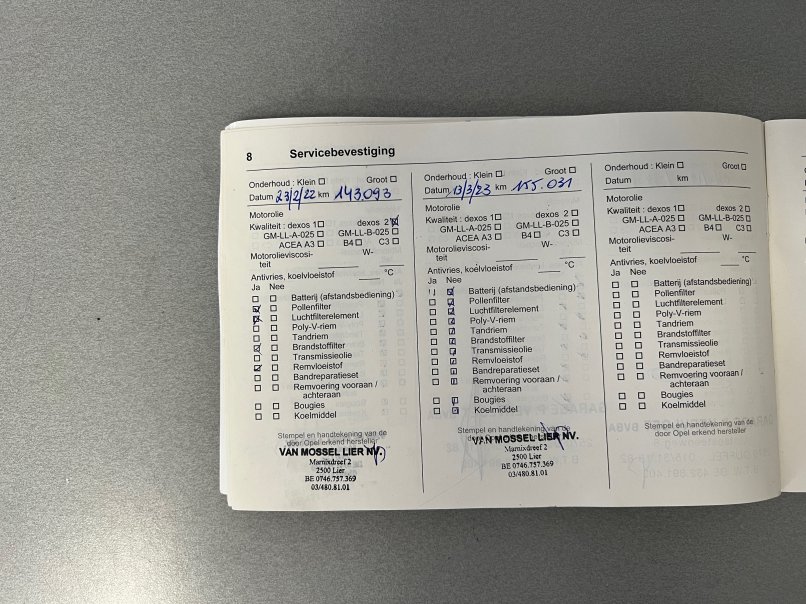 8 Servicebevestiging
Onderhoud : Klein ☐ Groot ☐
Datum 23/2/22 km 143093
Motorolie
Kwaliteit : dexos 1 ☐ dexos 2 ☒
GM-LL-A-025 ☐ GM-LL-B-025 ☐
ACEA A3 ☐ B4 ☐ C3 ☐
Motorolieviscosi-
teit W-
Antivries, koelvloeistof °C
Ja Nee
Batterij (afstandsbediening)
Pollenfilter
Luchtfilterelement
Poly-V-riem
Tandriem
Brandstoffilter
Transmissieolie
Remvloeistof
Bandreparatieset
Remvoering vooraan /
achteraan
Bougies
Koelmiddel
Stempel en handtekening van de
door Opel erkend hersteller
VAN MOSSEL LIER NV.
Mermansdreef 2
2500 Lier
BE 0746.757.369
03/480.81.01
Onderhoud : Klein ☐ Groot ☐
Datum 13/3/22 km 155.031
Motorolie
Kwaliteit : dexos 1 ☐ dexos 2 ☐
GM-LL-A-025 ☐ GM-LL-B-025 ☐
ACEA A3 ☐ B4 ☐ C3 ☐
Motorolieviscosi-
teit W-
Antivries, koelvloeistof °C
Ja Nee
Batterij (afstandsbediening)
Pollenfilter
Luchtfilterelement
Poly-V-riem
Tandriem
Brandstoffilter
Transmissieolie
Remvloeistof
Bandreparatieset
Remvoering vooraan /
achteraan
Bougies
Koelmiddel
Stempel en handtekening van de
VAN MOSSEL LIER NV.
2500 Lier
BE 0746.757.369
03/480.81.01
Onderhoud : Klein ☐ Groot ☐
Datum km
Motorolie
Kwaliteit : dexos 1 ☐ dexos 2 ☐
GM-LL-A-025 ☐ GM-LL-B-025 ☐
ACEA A3 ☐ B4 ☐ C3 ☐
Motorolieviscosi-
teit W-
Antivries, koelvloeistof °C
Ja Nee
Batterij (afstandsbediening)
Pollenfilter
Luchtfilterelement
Poly-V-riem
Tandriem
Brandstoffilter
Transmissieolie
Remvloeistof
Bandreparatieset
Remvoering vooraan /
achteraan
Bougies
Koelmiddel
Stempel en handtekening van de
door Opel erkend hersteller